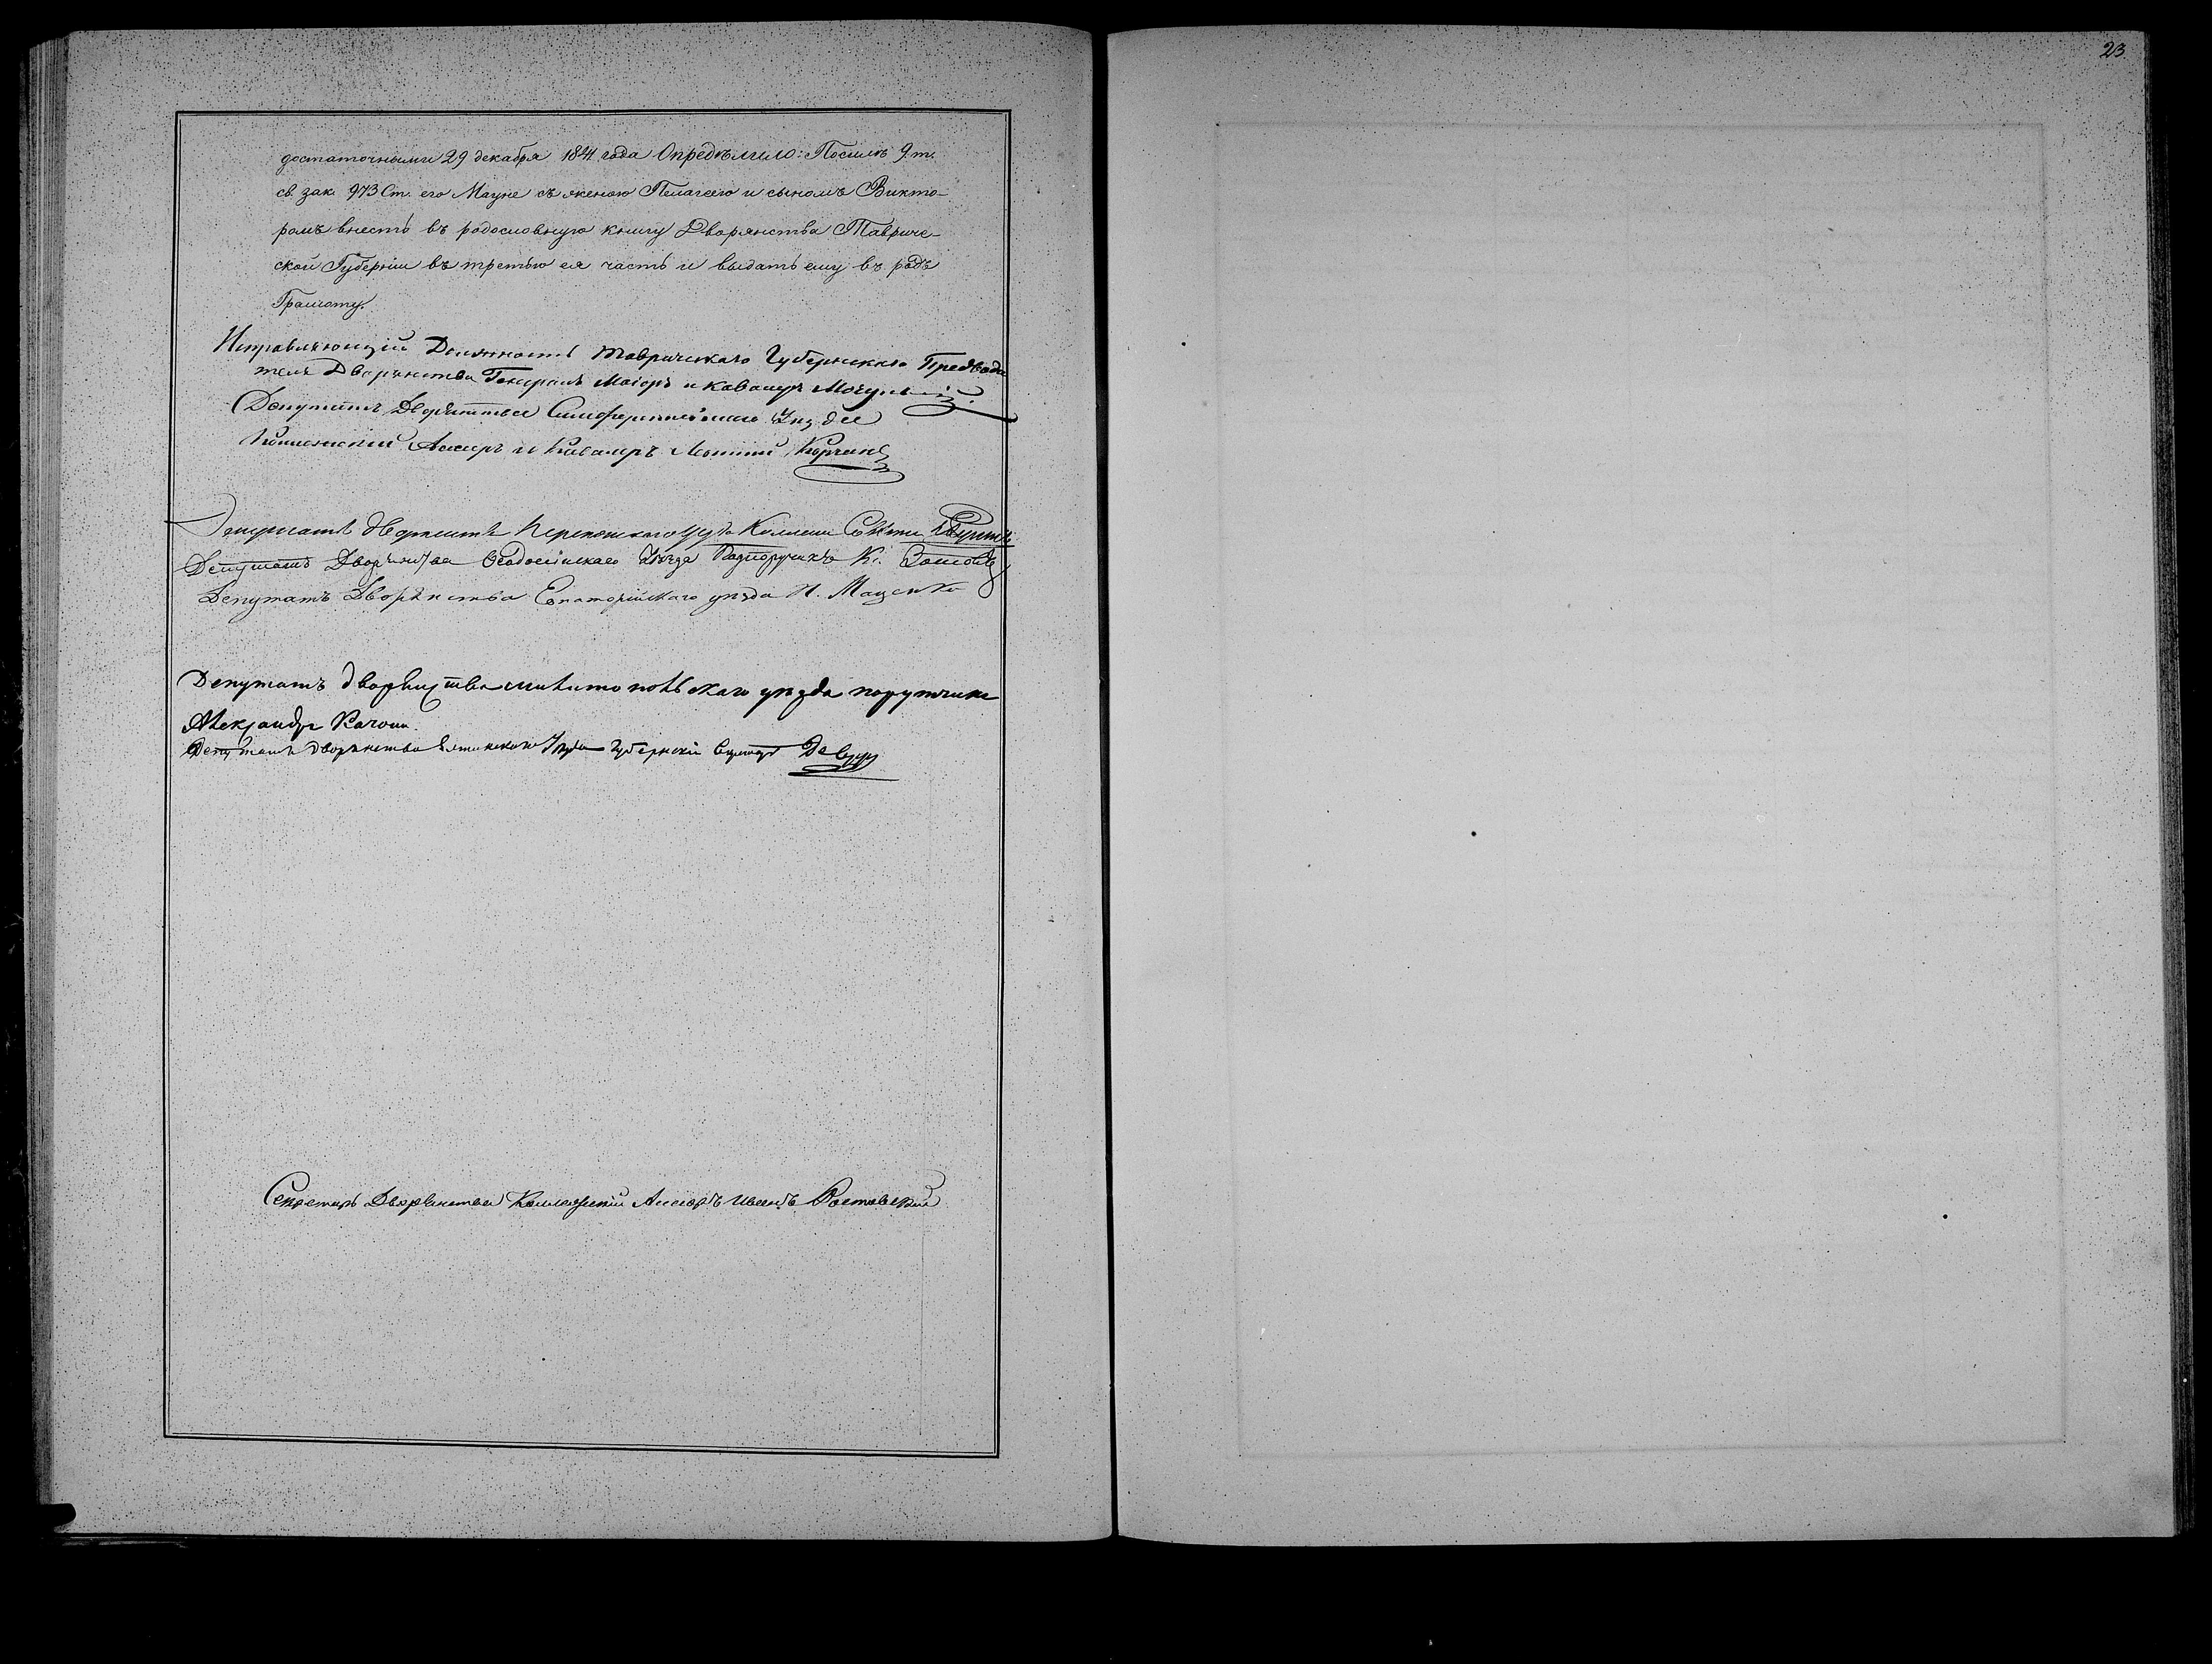 23
достаточными 29 декабря 1841 года Определило: По силѣ 9. т.
св. зак. 973 Ст. его Мауне съ женою Пелагеею и сыномъ Викто-
ромъ внесть въ родословную книгу Дворянства Тавриче-
ской Губерніи въ третью ея часть и выдать ему въ родъ
Грамоту.
Исправляющій Должность Таврическаго Губернскаго Предводи
теля Дворянства Генералъ Маіоръ и Кавалеръ
Депутатъ Дворянства Симферопольскаго Уѣзда
Асесоръ и Кавалеръ
Депутатъ Дворянства Перекопскаго уѣзда
Депутатъ Дворянства Ѳеодосійскаго Уѣзда Подпоручикъ К.
Депутатъ Дворянства Евпаторійскаго уѣзда И. Маценко
Депутатъ дворянства мелитопольскаго уѣзда порутчикъ
Александръ Качони
Депутатъ дворянства Ялтинскаго Уѣзда Губернскій Секретарь
Секретарь Дворянства Коллежскій Асесоръ Иванъ Ростовскій